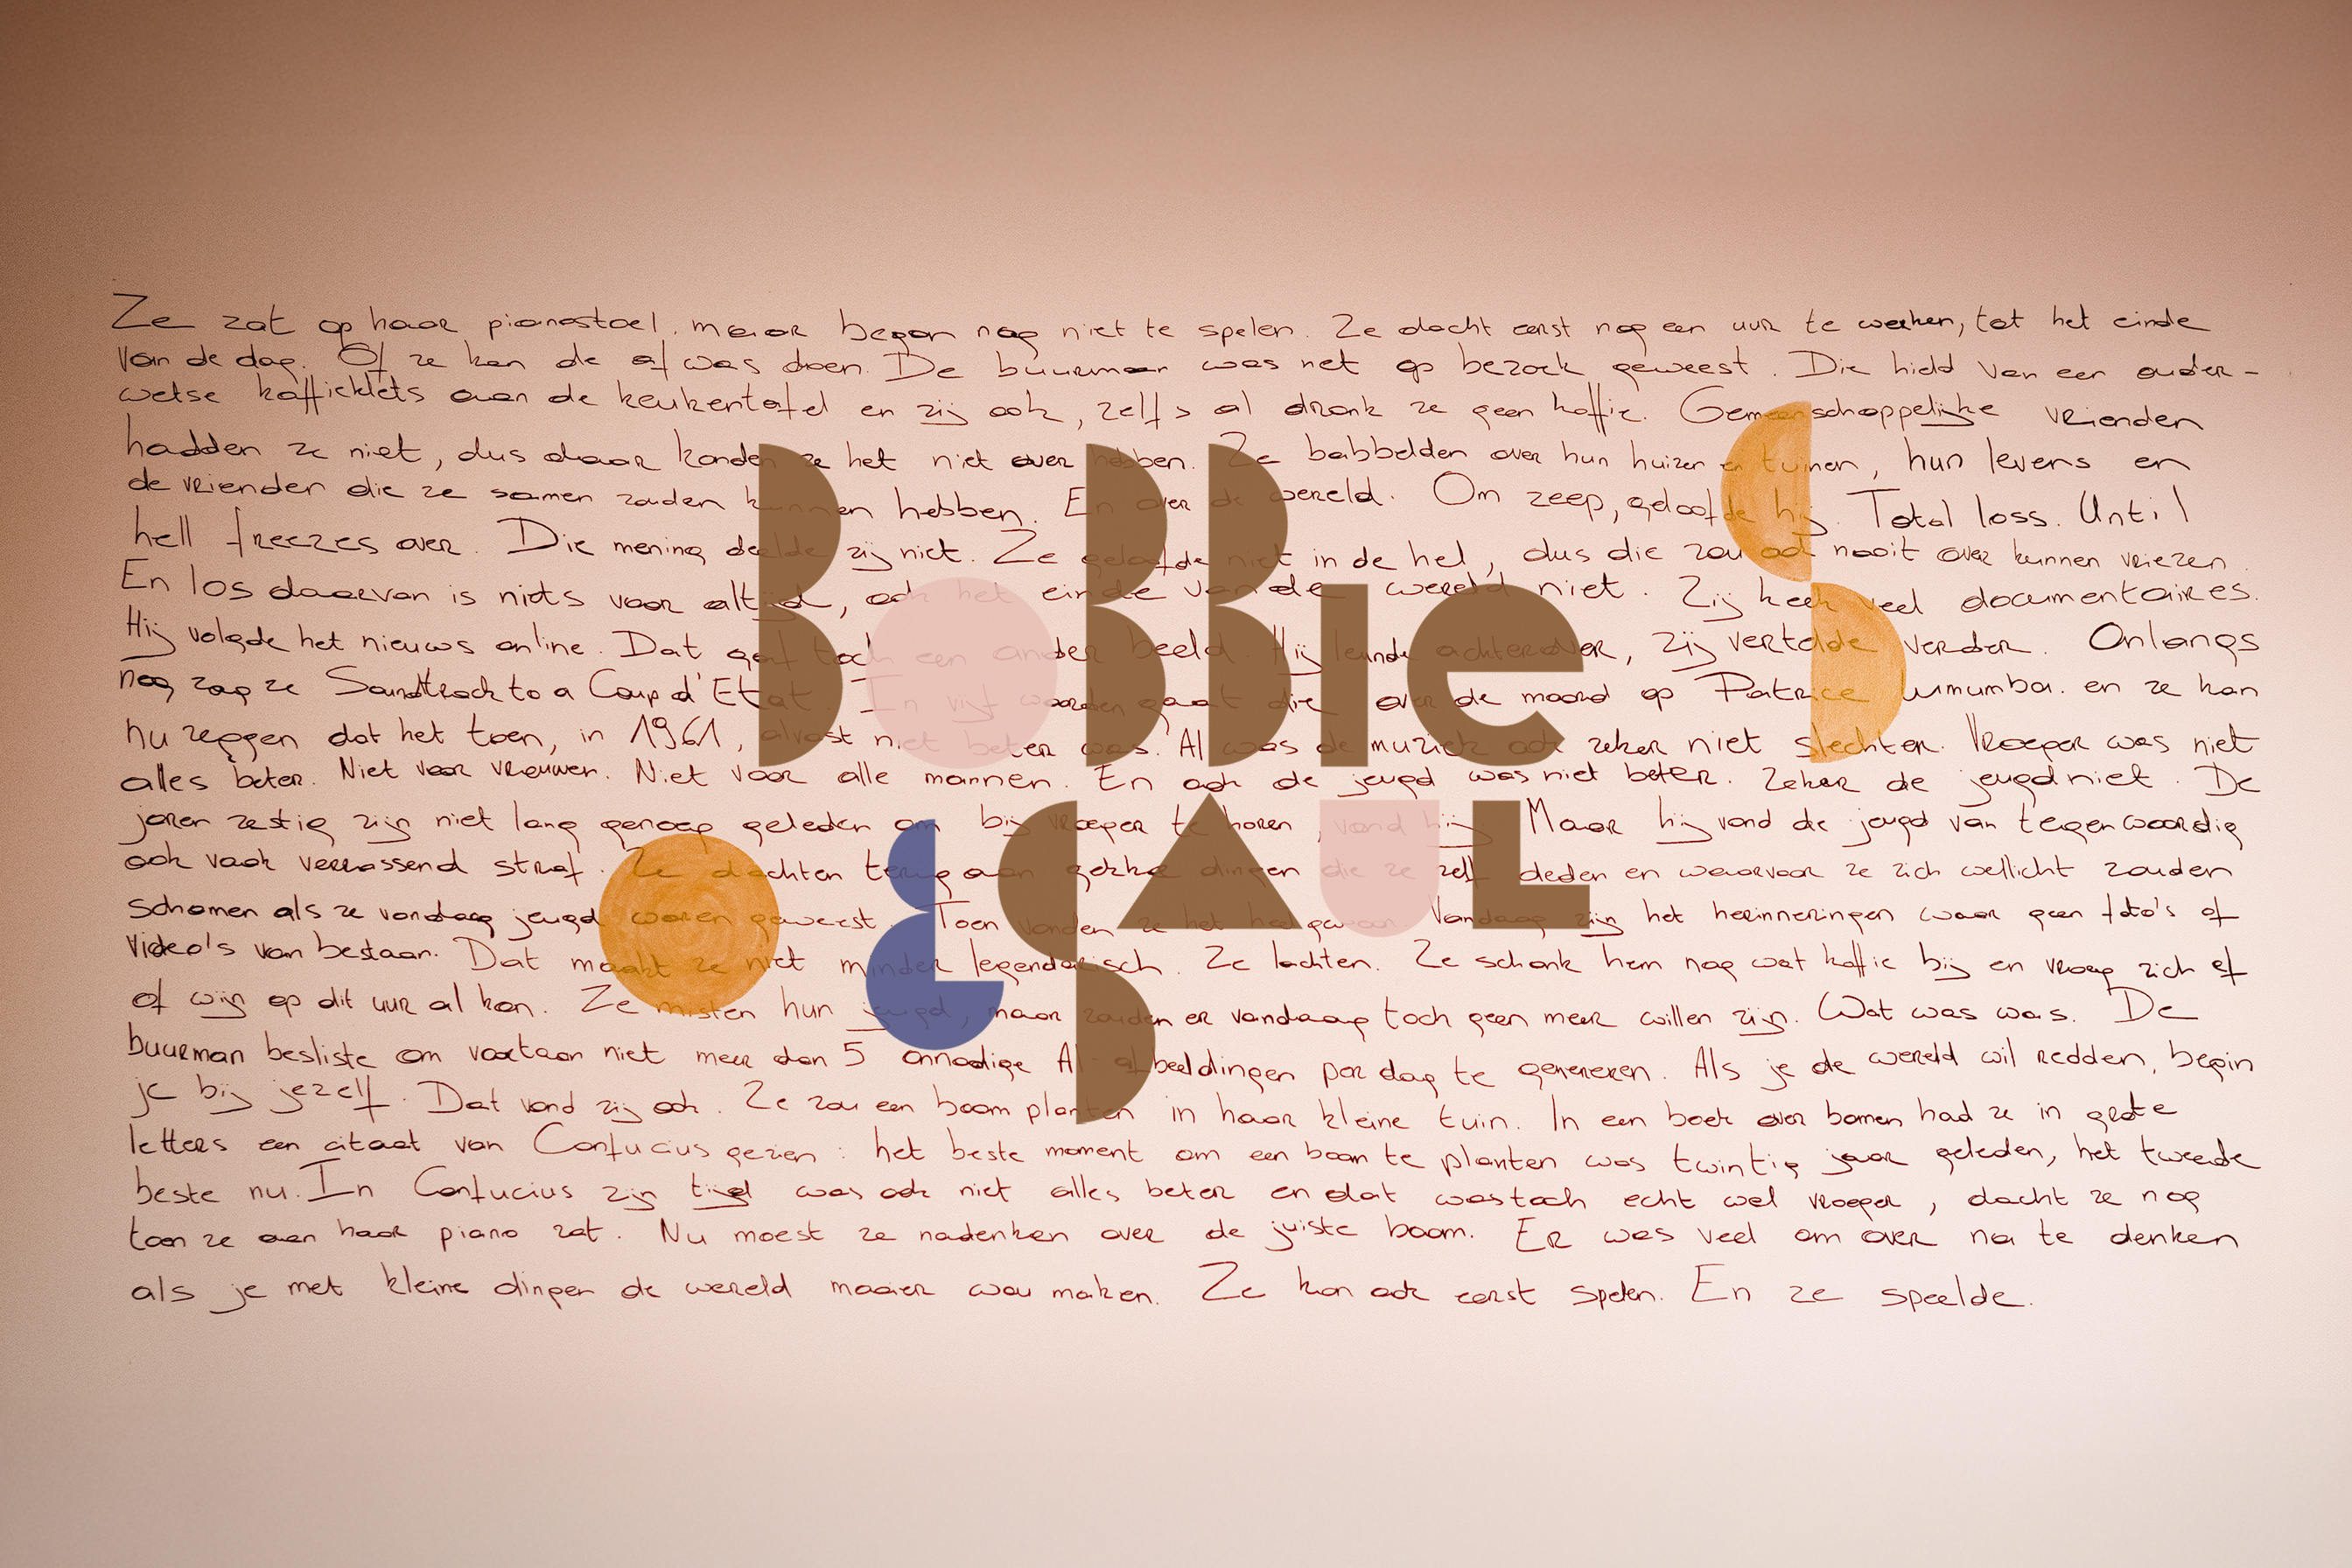 Ze zat op haar pianostoel, maar began nog niet te spelen. Ze dacht eerst nog een uur te werken, tot het einde
van de dag. Of ze kon de afwas doen. De buurman was net op bezoek geweest. Die hield van een ouder-
wetse kaffieklets aan de keukentafel en zij ook, zelfs al dronk ze geen koffie. Gemeenschappelijke vrienden
hadden ze niet, dus daar konden ze het niet over hebben. Ze babbelden over hun huizen en tuinen, hun levens en
de vrienden die ze samen zouden kunnen hebben. En over de wereld. Om zeep, geloofde hij. Total loss. Until
hell freezes over. Die mening deelde zij niet. Ze geloofde niet in de hel, dus die zou ook nooit over kunnen vriezen.
En los daarvan is niets voor altijd, ook het einde van de wereld niet. Zij keek veel documentaires.
Hij volgde het nieuws online. Dat gaf toch een ander beeld. Hij leunde achterover, zij vertelde verder. Onlangs
nog zag ze Soundtrack to a Coup d'Etat. In vijf woorden gaat die over de moord op Patrice Lumumba. en ze kan
nu zeggen dat het toen, in 1961, alvast niet beter was. Al was de muziek ook zeker niet slechter. Vroeger was niet
alles beter. Niet voor vrouwen. Niet voor alle mannen. En ook de jeugd was niet beter. Zeker de jeugd niet. De
jaren zestig zijn niet lang genoeg geleden om bij vroeger te horen, vond hij. Maar hij vond de jeugd van tegenwoordig
ook vaak verrassend straf. Ze dachten terug aan gekke dingen die ze zelf deden en waarvoor ze zich wellicht zouden
schamen als ze vandaag jeugd waren geweest. Toen vonden ze het heel gewoon. Vandaag zijn het herinneringen waar geen foto's of
video's van bestaan. Dat maakt ze niet minder legendarisch. Ze lachten. Ze schonk hem nog wat koffie bij en vroeg zich af
of wijn op dit uur al kon. Ze misten hun jeugd, maar zouden er vandaag toch geen meer willen zijn. Wat was was. De
buurman besliste om voortaan niet meer dan 5 onnodige AI-afbeeldingen per dag te genereren. Als je de wereld wil redden, begin
je bij jezelf. Dat vond zij ook. Ze zou een boom planten in haar kleine tuin. In een boek over bomen had ze in grote
letters een citaat van Confucius gezien: het beste moment om een boom te planten was twintig jaar geleden, het tweede
beste nu. In Confucius zijn tijd was ook niet alles beter en dat was toch echt wel vroeger, dacht ze nog
toen ze aan haar piano zat. Nu moest ze nadenken over de juiste boom. Er was veel om over na te denken
als je met kleine dingen de wereld mooier wou maken. Ze kon ook eerst spelen. En ze speelde.
BoBBie
& GAUL